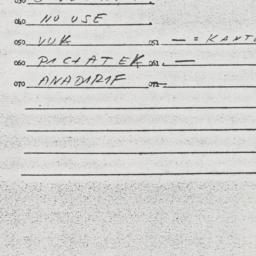 040 NO USE
050 VUK 051 — = KANT
060 PICHATEK 061 —
070 ANADIRIF 071